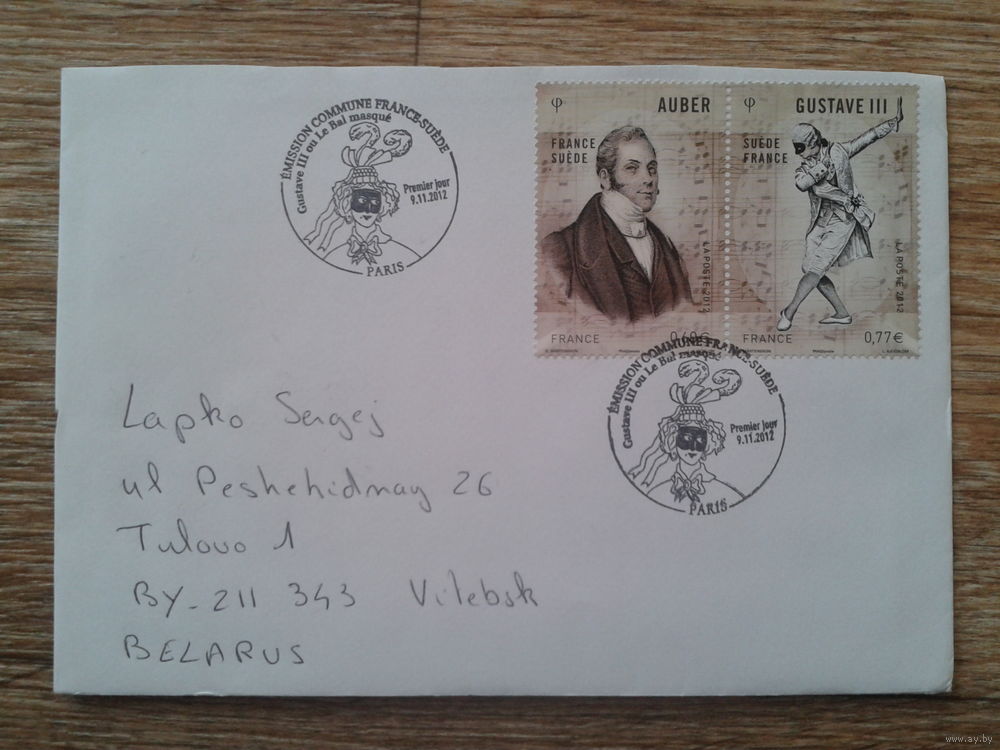 ÉMISSION COMMUNE FRANCE-SUÈDE
Gustave III ou Le Bal masqué
Premier jour
9.11.2012
PARIS
AUBER
FRANCE
SUÈDE
LA POSTE 2012
FRANCE
0,60€
GUSTAVE III
SUÈDE
FRANCE
LA POSTE 2012
FRANCE
0,77€
ÉMISSION COMMUNE FRANCE-SUÈDE
Gustave III ou Le Bal masqué
Premier jour
9.11.2012
PARIS
Lapko Sergej
ul Peshehidnay 26
Tulovo 1
BY-211 343 Vitebsk
BELARUS
www.ay.by